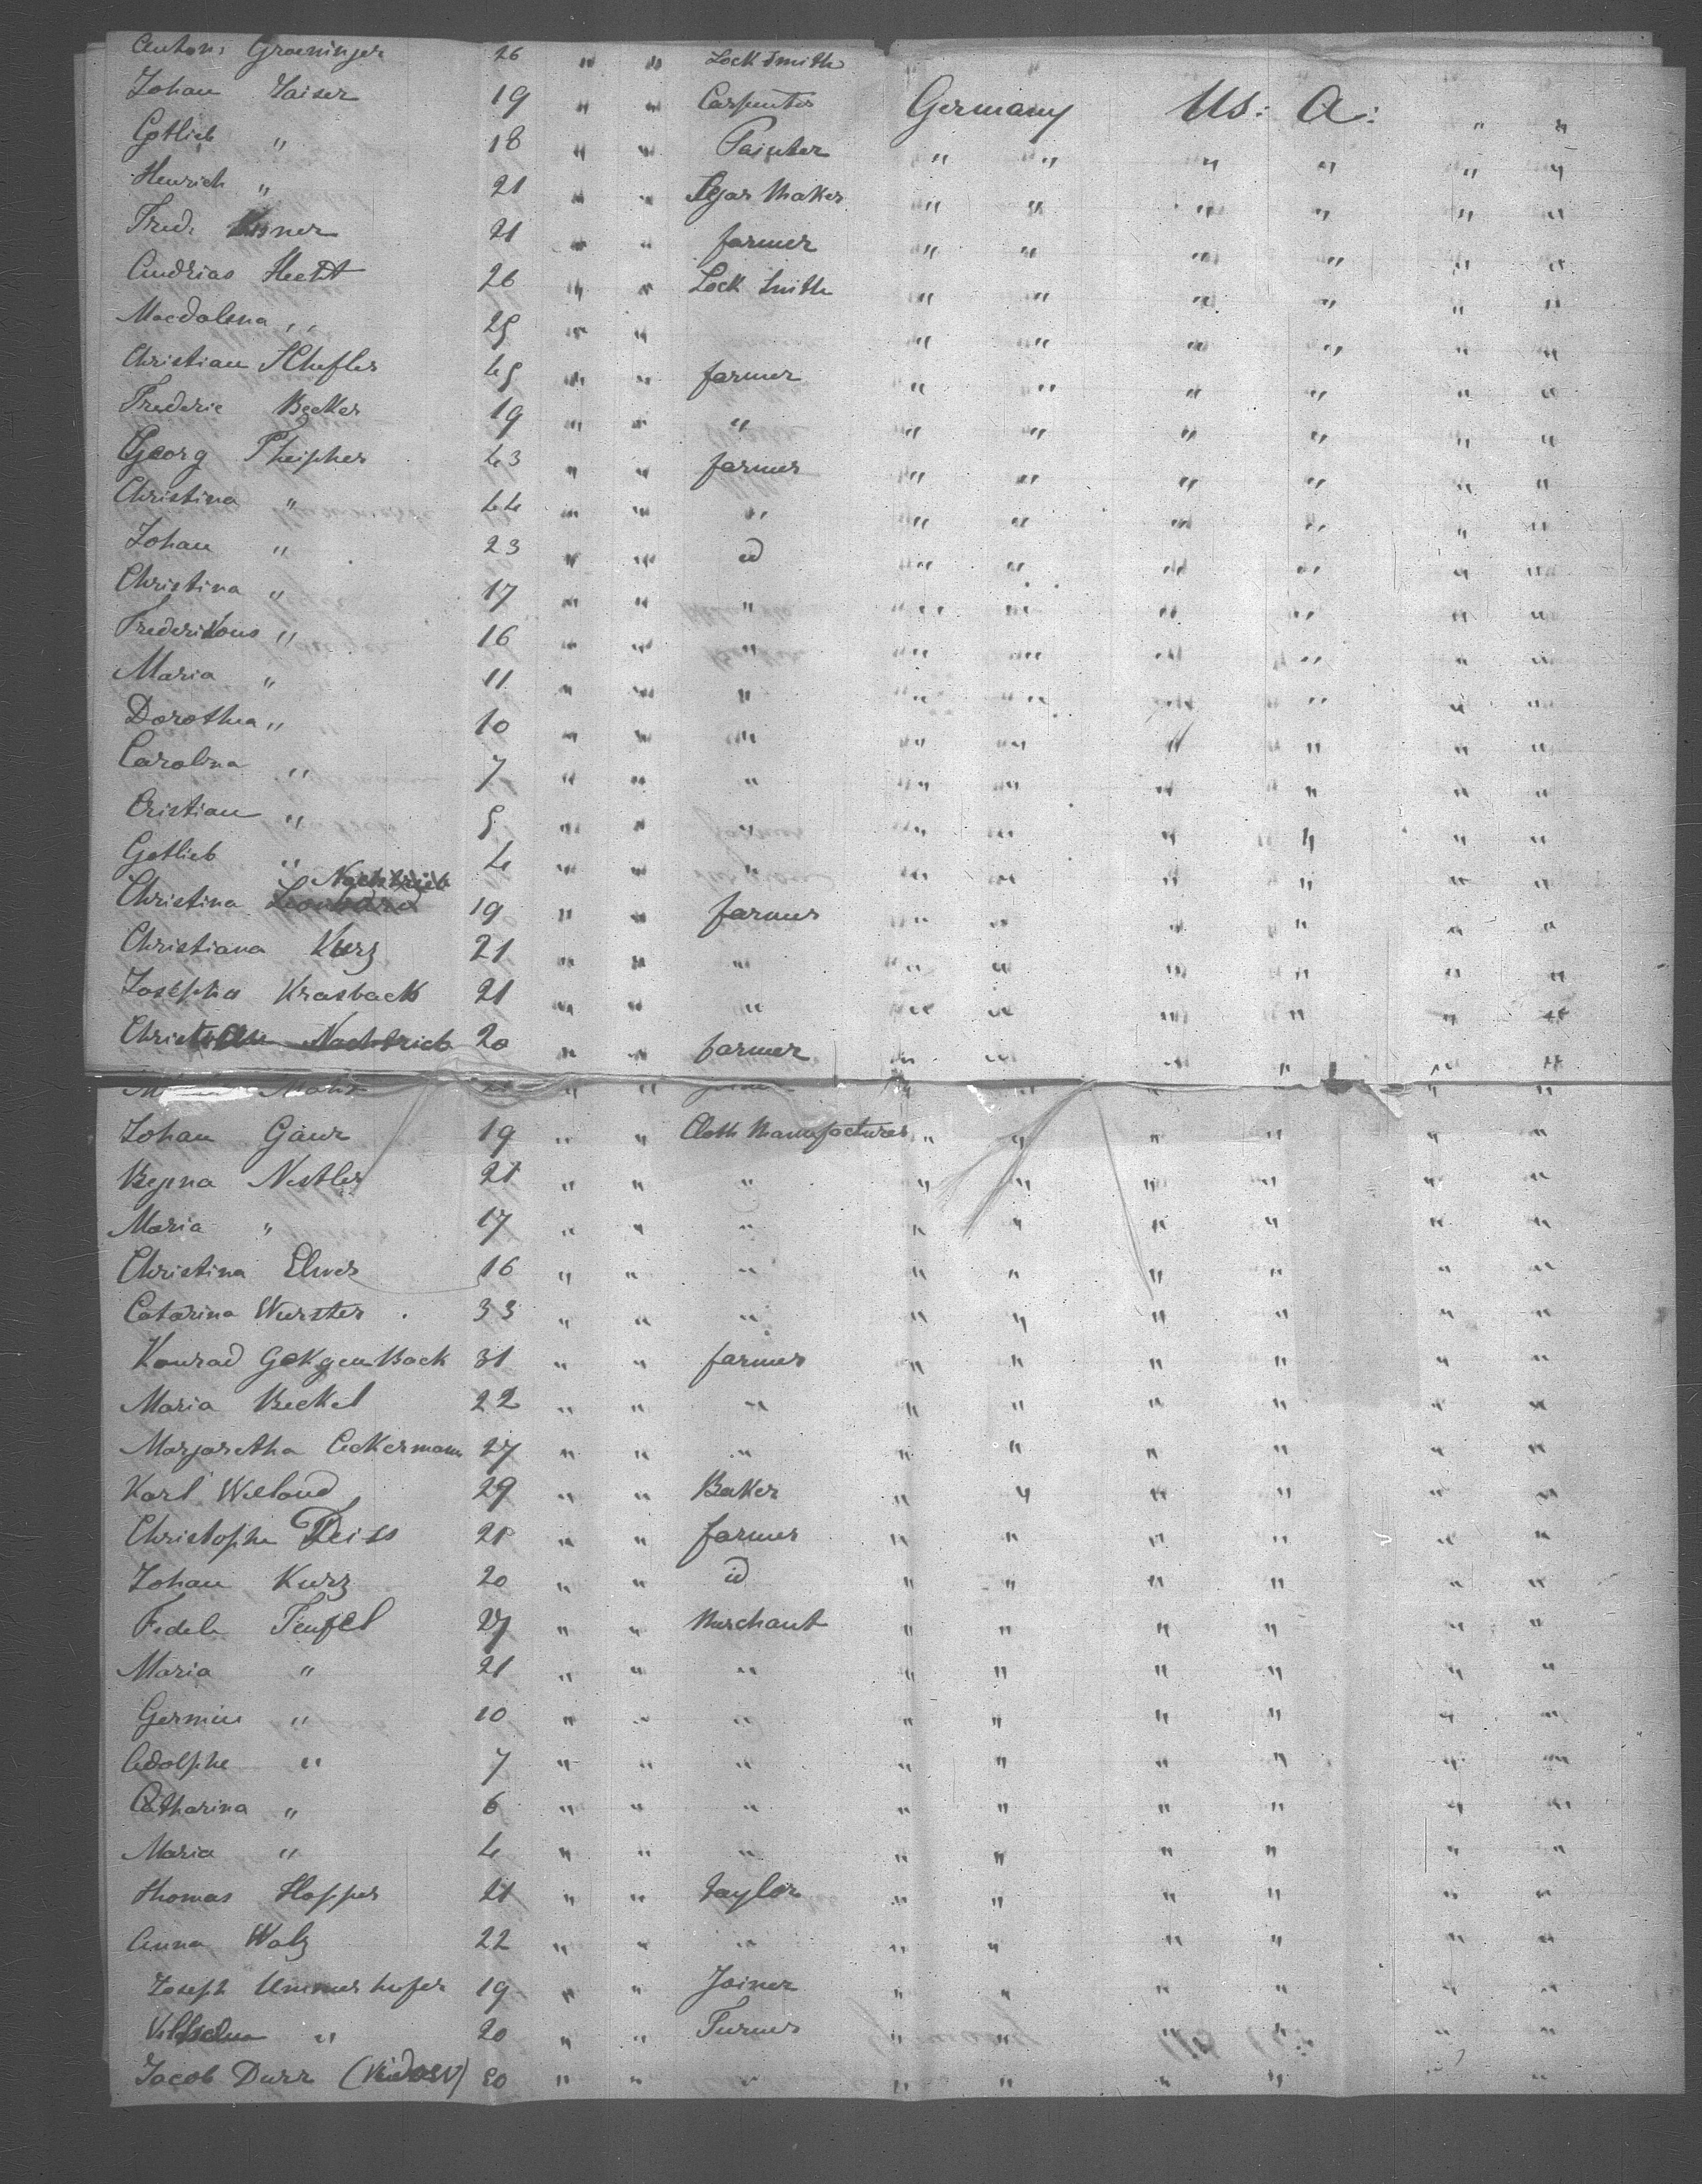 Anton Groeninger 26 " " Lock Smith
Johan Kaiser 19 " " Carpenter Germany US: A: " "
Gotlieb " 18 " " Painter " " " " " "
Henrich " 21 " " Segar Maker " " " " " "
Fred. 21 " " farmer " " " " " "
Andrias Hecht 26 " " Lock Smith " " " " " "
Macdalena " 25 " " " " " " " "
Christian Schefler 45 " " farmer " " " " " "
Frederic Becker 19 " " " " " " " " "
Georg Pheipher 43 " " farmer " " " " " "
Christina " 44 " " " " " " " " "
Johan " 23 " " id " " " " " "
Christina " 17 " " " " " " " " "
Frederikous " 16 " " " " " " " " "
Maria " 11 " " " " " " " " "
Dorothea " 10 " " " " " " " " "
Carolina " 7 " " " " " " " " "
Cristian " 5 " " " " " " " " "
Gotlieb " 4 " " " " " " " " "
Nachtrieb
Christina 19 " " farmer " " " " " "
Christiana Kurz 21 " " " " " " " " "
Josepha Krasback 21 " " " " " " " " "
Christian Nachtrieb 20 " " farmer " " " " " "
Johan Gaur 19 " " Cloth Manufacturer " " " " " "
Regina Nestler 21 " " " " " " " " "
Maria " 17 " " " " " " " " "
Christina Elwer 16 " " " " " " " " "
Catarina Wurster 33 " " " " " " " " "
Konrad GekgenBack 31 " " farmer " " " " " "
Maria Beckel 22 " " " " " " " " "
Margaretha Ackermann 27 " " " " " " " " "
Karl Weland 29 " " Baker " " " " " "
Christophe Deiss 21 " " farmer " " " " " "
Johan Kurz 20 " " id " " " " " "
Fidele Teufel 27 " " Merchant " " " " " "
Maria " 21 " " " " " " " " "
Germin " 10 " " " " " " " " "
Adolphe " 7 " " " " " " " " "
Catharina " 6 " " " " " " " " "
Maria " 4 " " " " " " " " "
Thomas Hopper 21 " " Taylor " " " " " "
Anna Walz 22 " " " " " " " " "
Joseph Ummerhofer 19 " " Joiner " " " " " "
" 20 " " Turner " " " " " "
Jacob Durr 20 " " " " " " " "